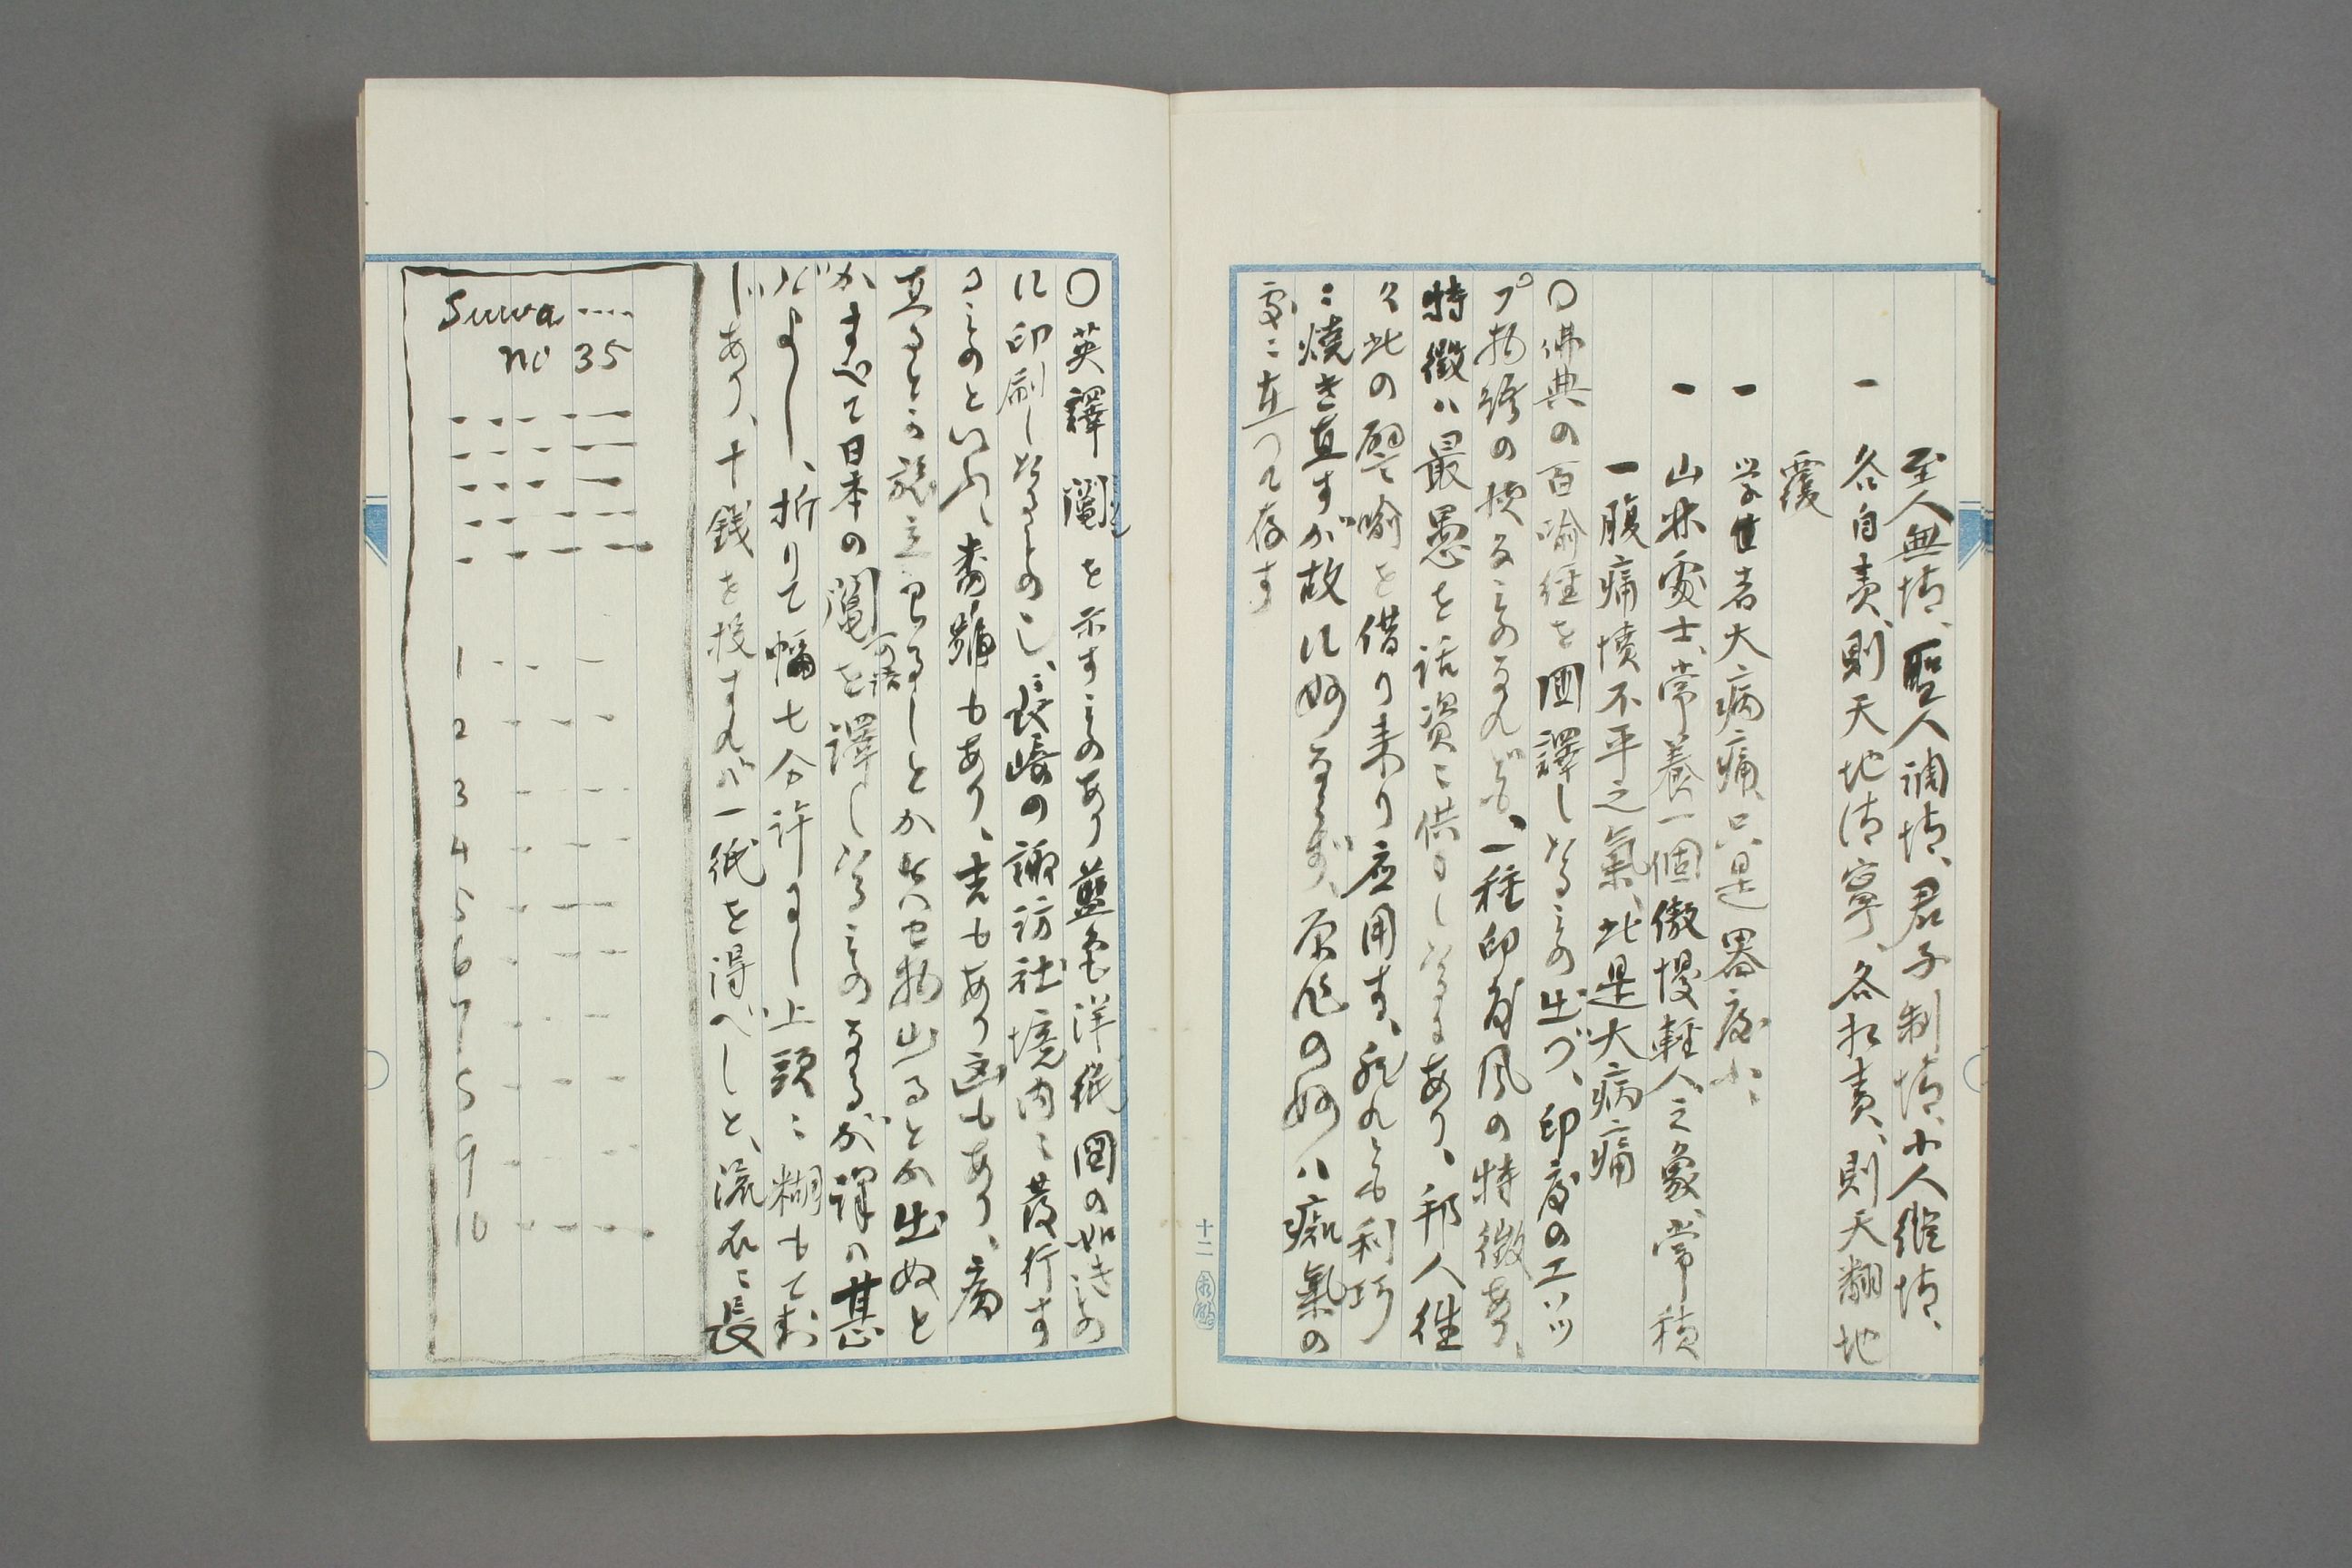 至人無情、聖人調情、君子制情、小人縱情、
一 各自責、則天地清寧、各相責、則天翻地
覆
一 学者大病痛、只是器度小、
一 山林處士、常養一個傲慢軽人之象、常積
一腹痛憤不平之氣、此是大病痛
〇佛典の百喩経を国譯しなるもの出づ、印度のエソツ
プ物語の様なものなれども、一種印度風の特徴あり、
特徴ハ最愚を話資ニ供したるにあり、邦人往
々此の譬喩を借り来り应用す、然れとも利巧
ニ焼き直すが故に妙ならず、原作の妙ハ痴氣の
處ニ立つて存す
十二
〇英譯闇を示すものあり藍色洋紙図の如きもの
に印刷したるもの也、長崎の諏訪社境内ニ發行す
るものといふ、番号もあり、吉もあり凶もあり、病
直るとか旅立よろしとか失せ物出るとか出ぬと
かすべて日本の闇を譯したるものなるが譯ハ甚
だよし、折りて幅七分許にし上頭ニ糊もて封
じあり、十銭を投ずれバ一紙を得べしと、流石ニ長
Suwa ....
no 35
1
2
3
4
5
6
7
8
9
10